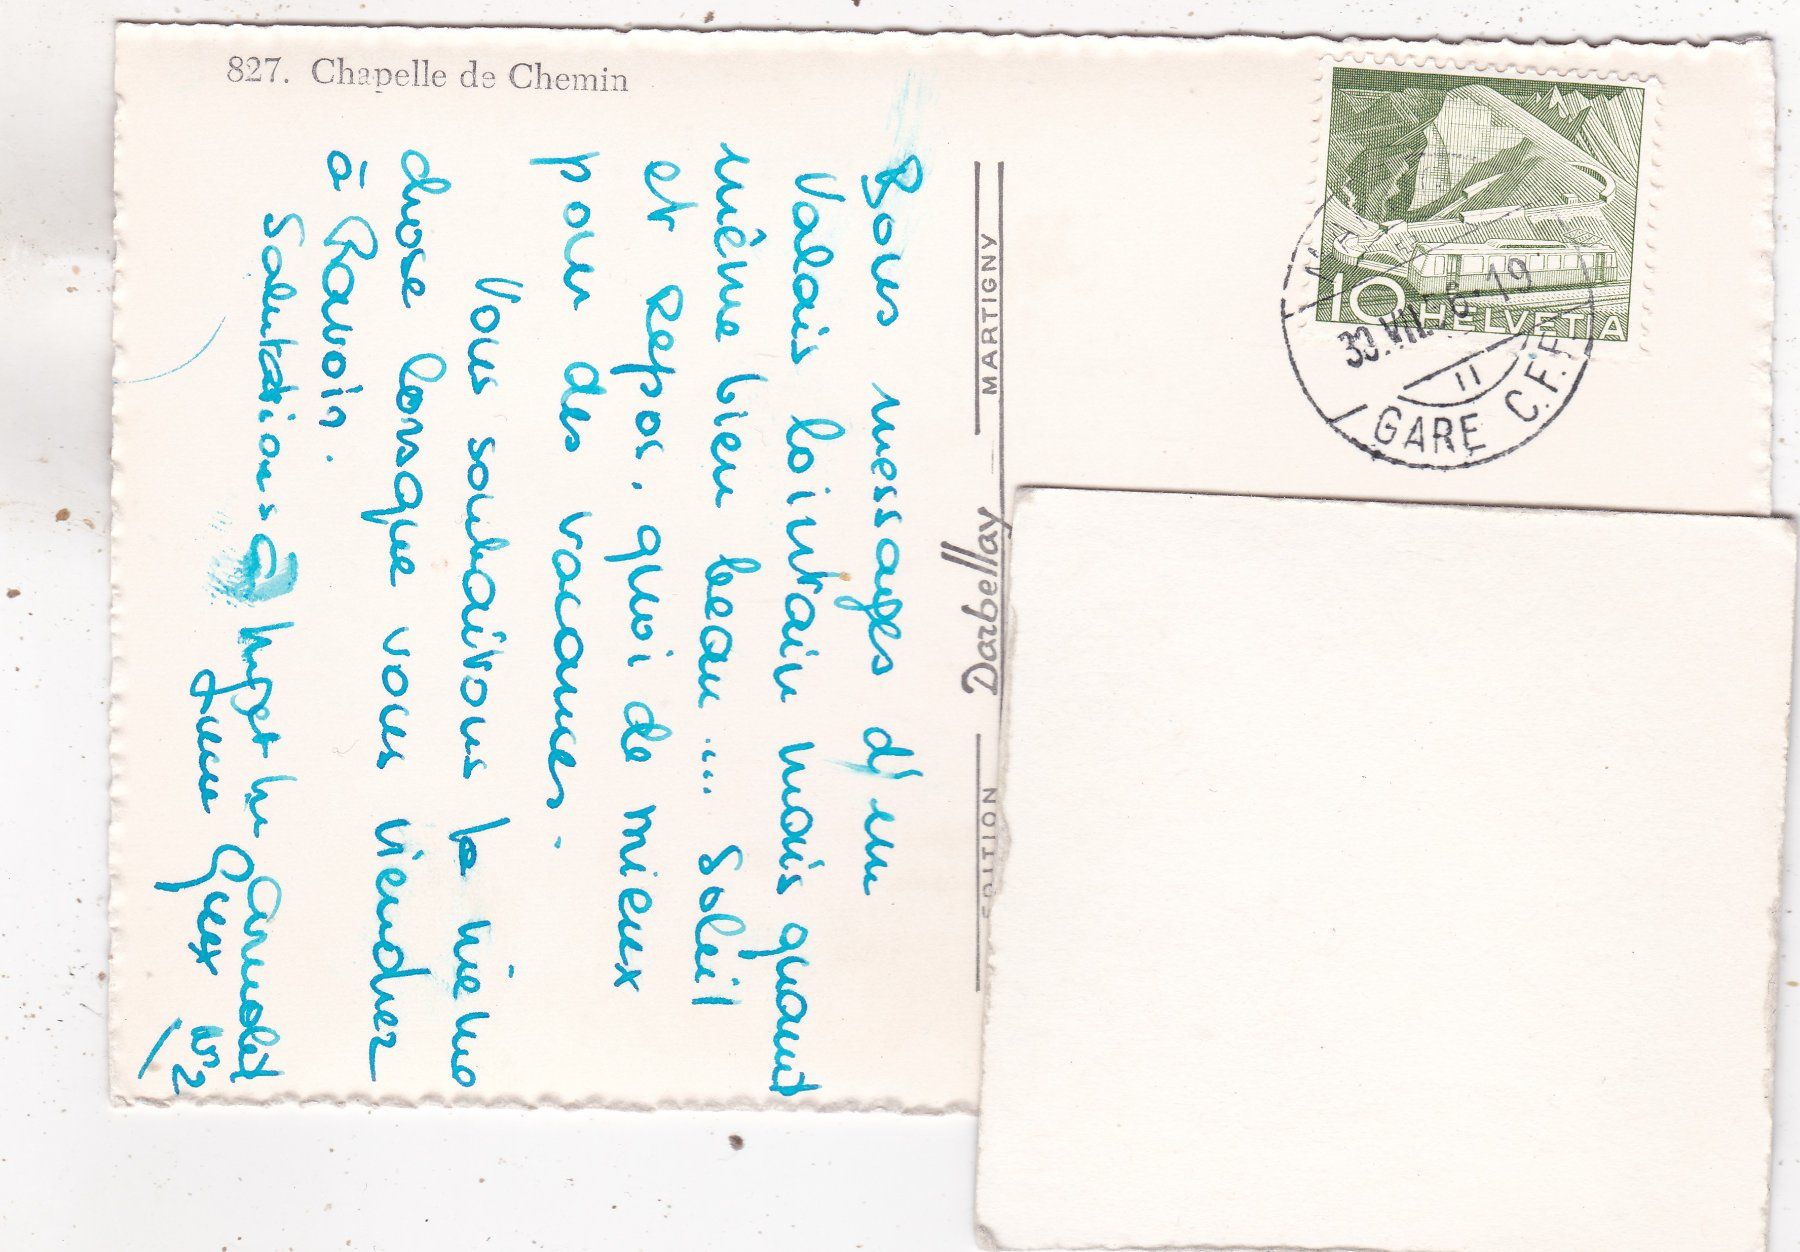 827. Chapelle de Chemin
Bons messages d'un
Valais lointain mais quand
même bien beau ... Soleil
et Repos, quoi de mieux
pour des vacances.
Vous souhaitons la même
chose lorsque vous viendrez
à Ravoir.
Salutations
Guex
N°2
EDITION Darbellay MARTIGNY
10 HELVETIA
30.VII.56-19
11
GARE C.F.F.